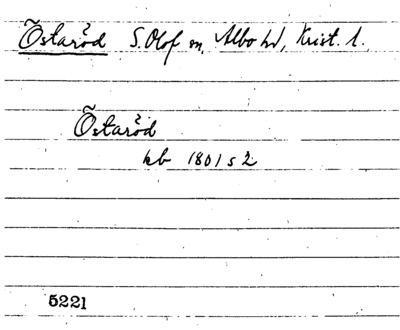 Östaröd S. Olof sn, Albo hd, Krist. l.
Östaröd
kb 1801 s 2
5221